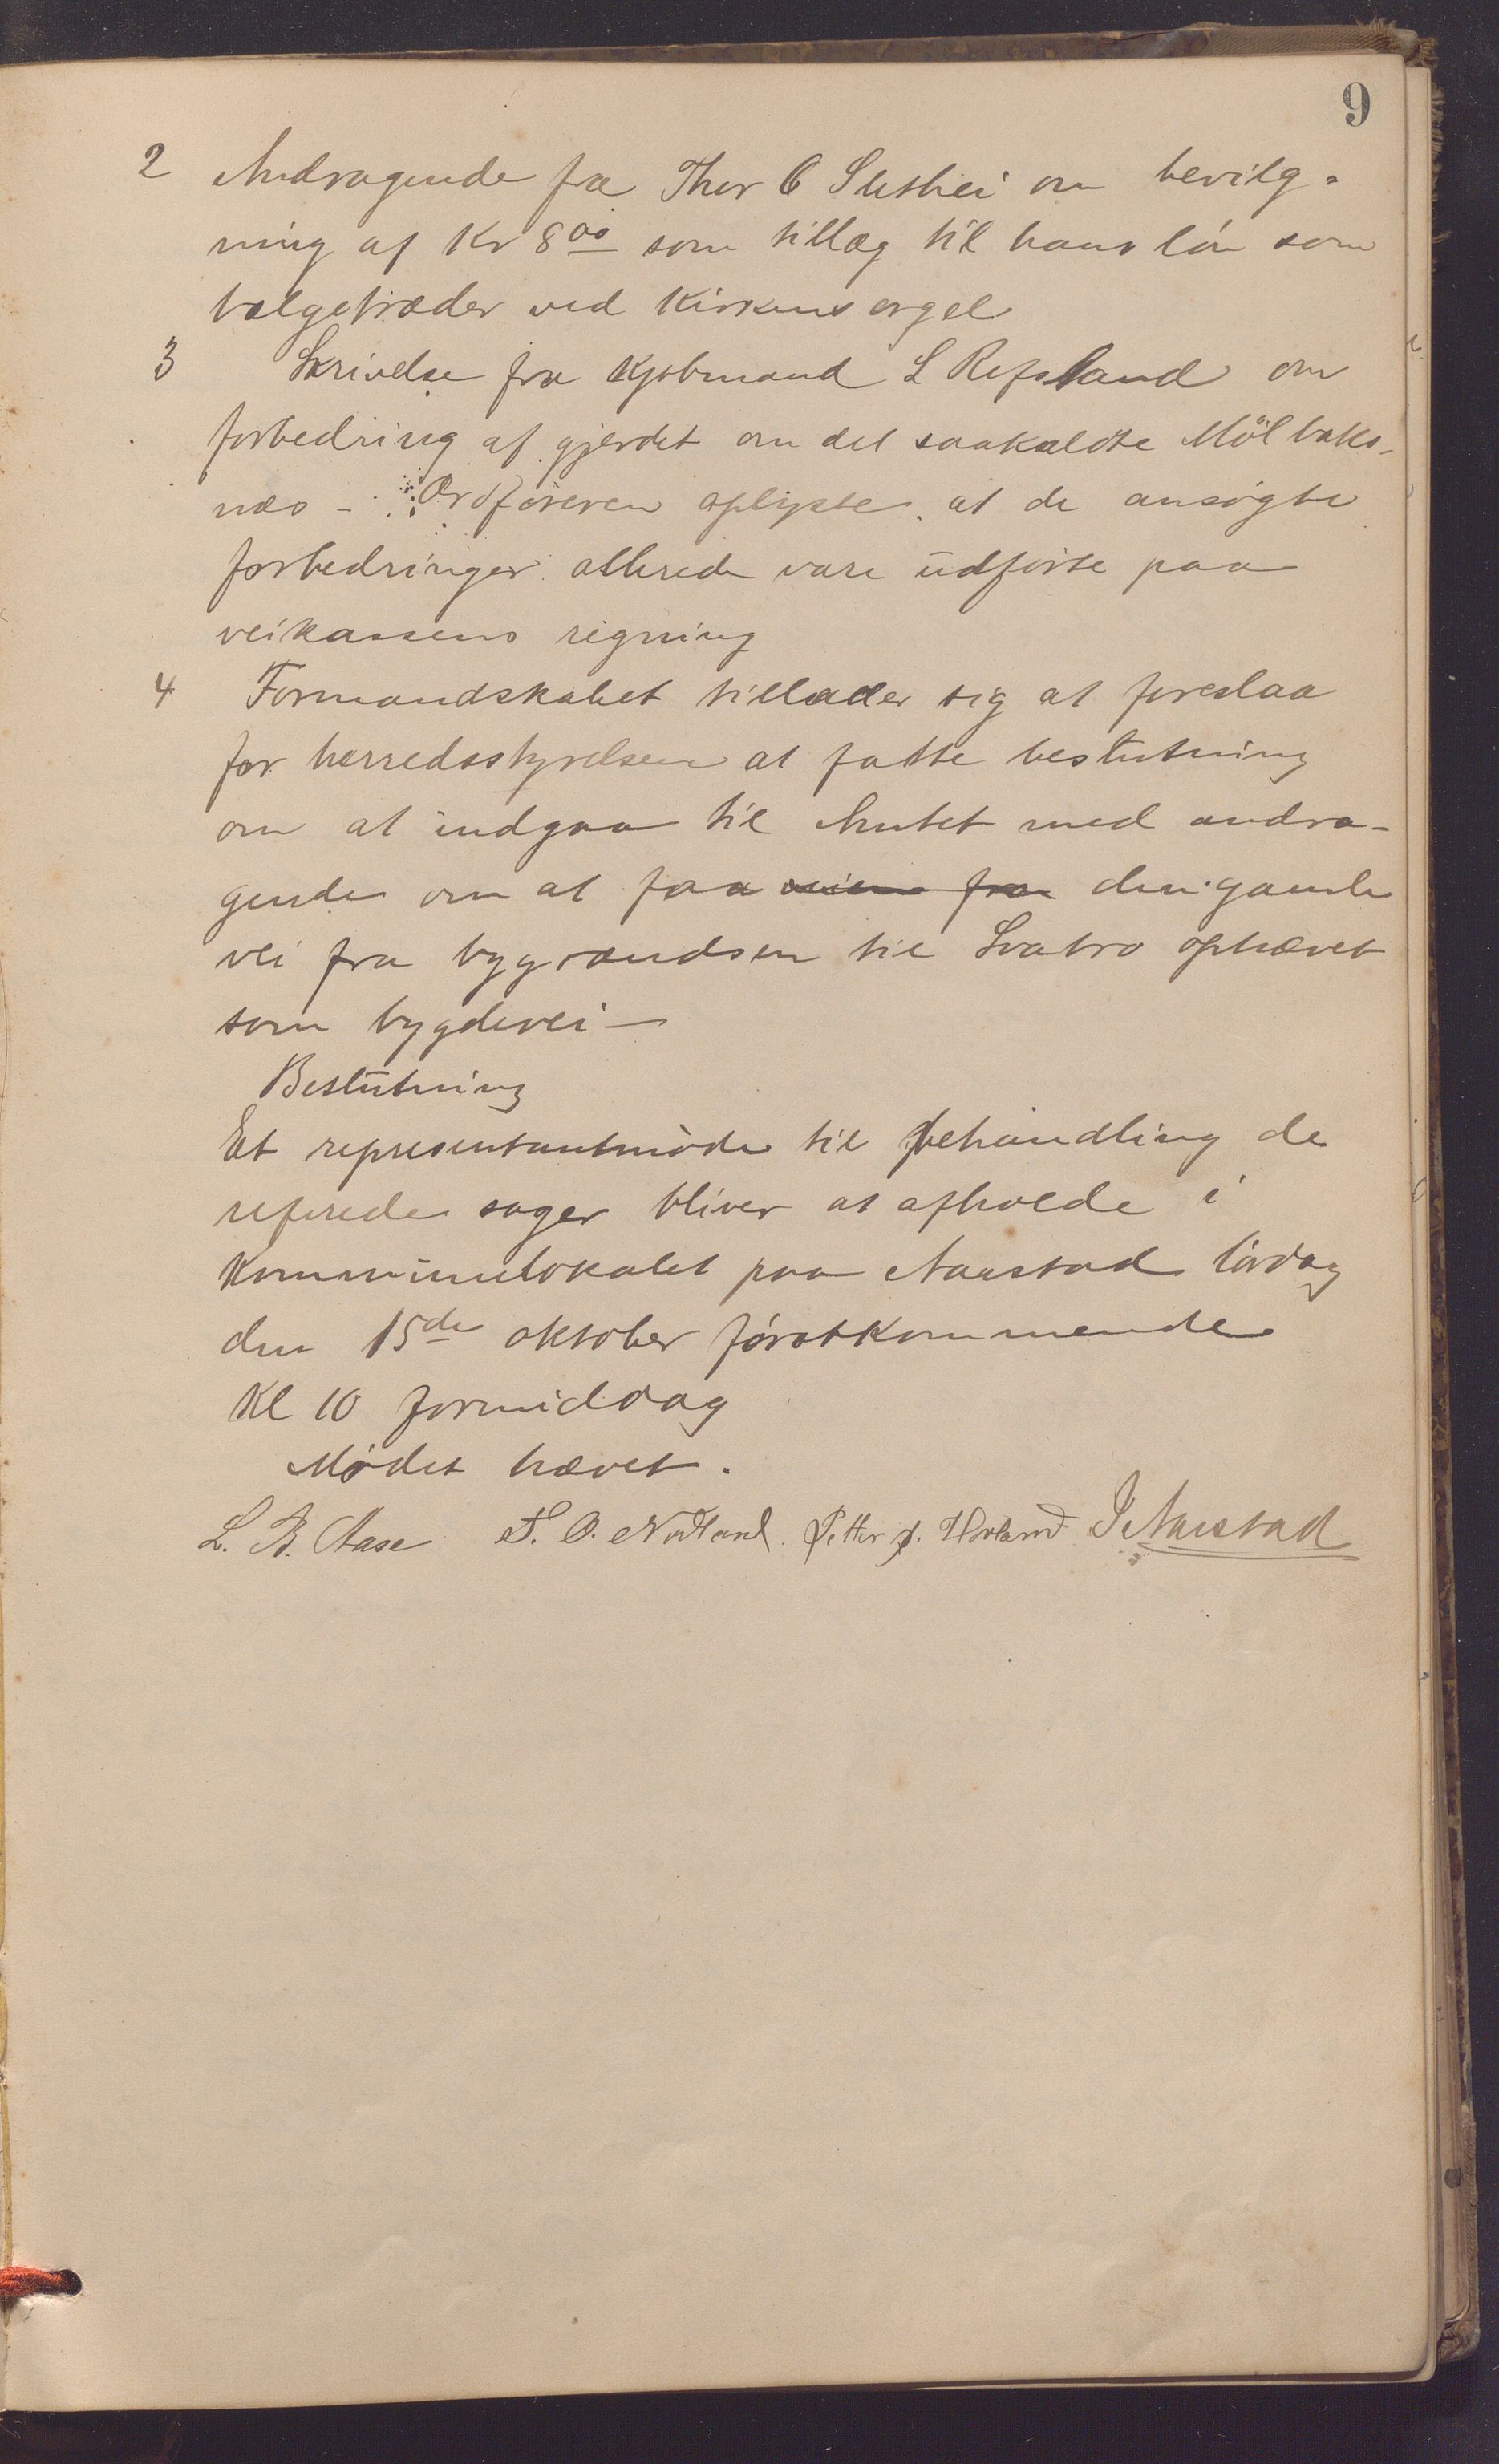 9
2 Andragende fra Thor O Slethei om bevilg-
ning af Kr 8 00 som tillæg til hans løn som
bælgetræder ved Kirkens orgel
3 Skrivelse fra Kjøbmand L Refsland om
forbedring af gjerdet om det saakaldte Mölbaks-
næs - Ordføreren oplyste at de ansøgte
forbedringer allerede vare udførte paa
veikassens regning
4 Formandskabet tillader sig at foreslaa
for herredsstyrelsen at fatte beslutning
om at indgaa til Amtet med andra-
gende om at faa veien fra den gamle
vei fra bygrændsen til Svabro ophævet
som bygdevei —
Beslutning
Et representantmøde til behandling de
referede sager bliver at afholde i
Kommunelokalet paa Aarstad lørdag
den 15de oktober førstkommende
Kl 10 formiddag
Mødet hævet.
L. B. Aase T. O. Nodland Petter J. Hovland J Aarstad